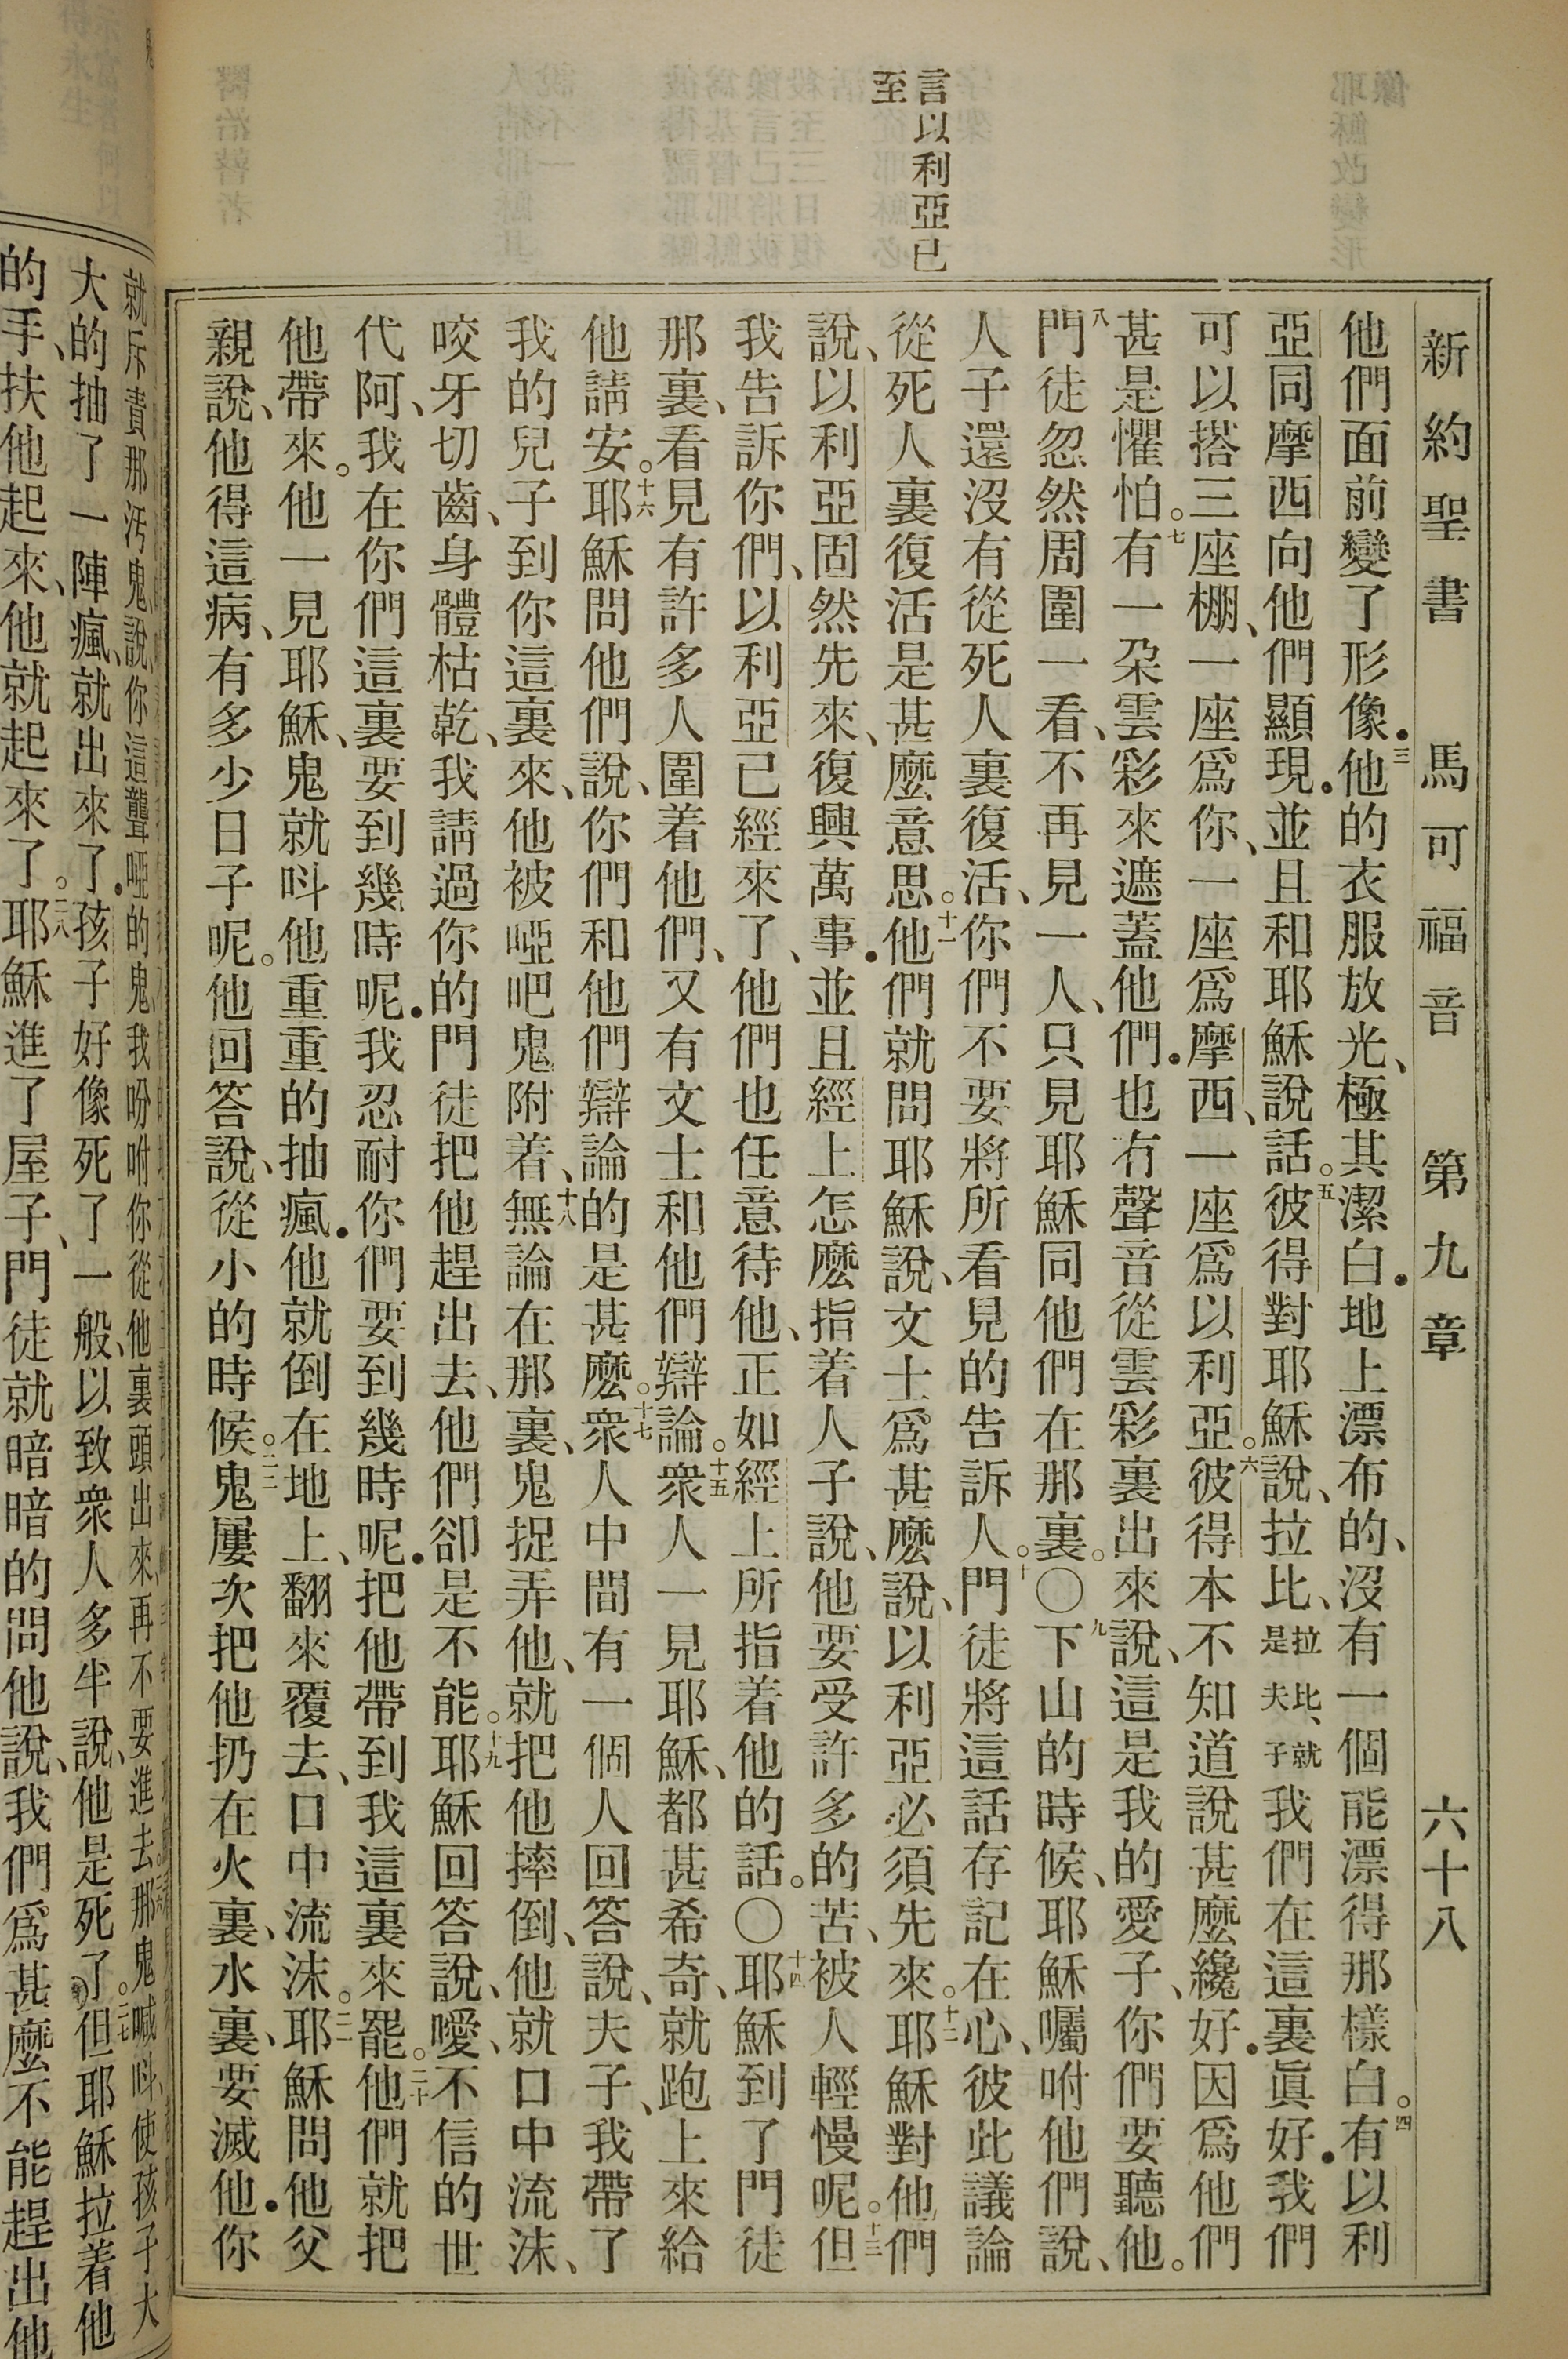 新約聖書 馬可福音 第九章 六十八
言以利亞已
至
他們面前變了形像．三他的衣服放光、極其潔白．地上漂布的、沒有一個能漂得那樣白。四有以利
亞同摩西向他們顯現．並且和耶穌說話。五彼得對耶穌說、拉比、拉比、就是夫子我們在這裏眞好．我們
可以搭三座棚、一座爲你、一座爲摩西、一座爲以利亞。六彼得本不知道說甚麼纔好．因爲他們
甚是懼怕。七有一朶雲彩來遮蓋他們．也有聲音從雲彩裏出來說、這是我的愛子、你們要聽他。
八門徒忽然周圍一看、不再見一人、只見耶穌同他們在那裏。〇九下山的時候、耶穌囑咐他們說、
人子還沒有從死人裏復活、你們不要將所看見的告訴人。十門徒將這話存記在心、彼此議論
從死人裏復活是甚麼意思。十一他們就問耶穌說、文士爲甚麼說、以利亞必須先來。十二耶穌對他們
說、以利亞固然先來、復興萬事．並且經上怎麼指着人子說、他要受許多的苦、被人輕慢呢。十三但
我告訴你們、以利亞已經來了、他們也任意待他、正如經上所指着他的話。〇十四耶穌到了門徒
那裏、看見有許多人圍着他們、又有文士和他們辯論。十五衆人一見耶穌、都甚希奇、就跑上來給
他請安。十六耶穌問他們說、你們和他們辯論的是甚麼。十七衆人中間有一個人回答說、夫子、我帶了
我的兒子到你這裏來、他被啞吧鬼附着、十八無論在那裏、鬼捉弄他、就把他摔倒、他就口中流沫、
咬牙切齒、身體枯乾、我請過你的門徒把他趕出去、他們卻是不能。十九耶穌回答說、噯、不信的世
代阿、我在你們這裏要到幾時呢．我忍耐你們要到幾時呢．把他帶到我這裏來罷。二十他們就把
他帶來。他一見耶穌、鬼就叫他重重的抽瘋．他就倒在地上、翻來覆去、口中流沫。二一耶穌問他父
親說、他得這病、有多少日子呢。他回答說、從小的時候。二二鬼屢次把他扔在火裏、水裏、要滅他．你
就斥責那汚鬼、說、你這聾啞的鬼、我吩咐你從他裏頭出來、再不要進去。那鬼喊叫、使孩子大
大的抽了一陣瘋、就出來了．孩子好像死了一般、以致衆人多半說、他是死了。二七但耶穌拉着他
的手、扶他起來、他就起來了。二八耶穌進了屋子、門徒就暗暗的問他說、我們爲甚麼不能趕出他